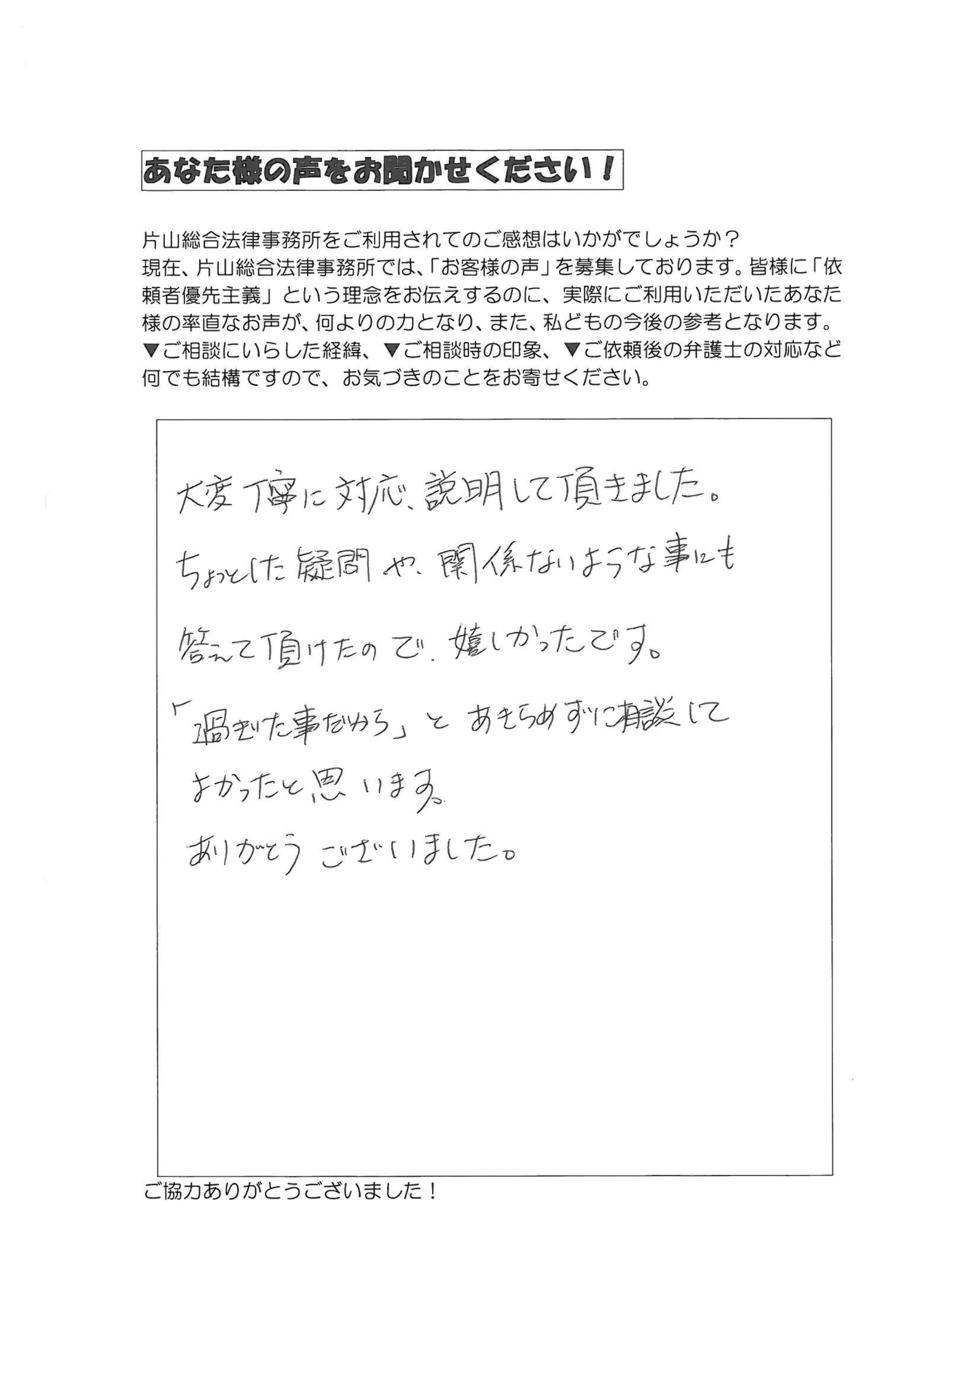 あなた様の声をお聞かせください！
片山総合法律事務所をご利用されてのご感想はいかがでしょうか？
現在、片山総合法律事務所では、「お客様の声」を募集しております。皆様に「依
頼者優先主義」という理念をお伝えするのに、実際にご利用いただいたあなた
様の率直なお声が、何よりの力となり、また、私どもの今後の参考となります。
▼ご相談にいらした経緯、▼ご相談時の印象、▼ご依頼後の弁護士の対応など
何でも結構ですので、お気づきのことをお寄せください。
大変丁寧に対応、説明して頂きました。
ちょっとした疑問や、関係ないような事にも
答えて頂けたので、嬉しかったです。
「過ぎた事だから」とあきらめずに相談して
よかったと思います。
ありがとうございました。
ご協力ありがとうございました！